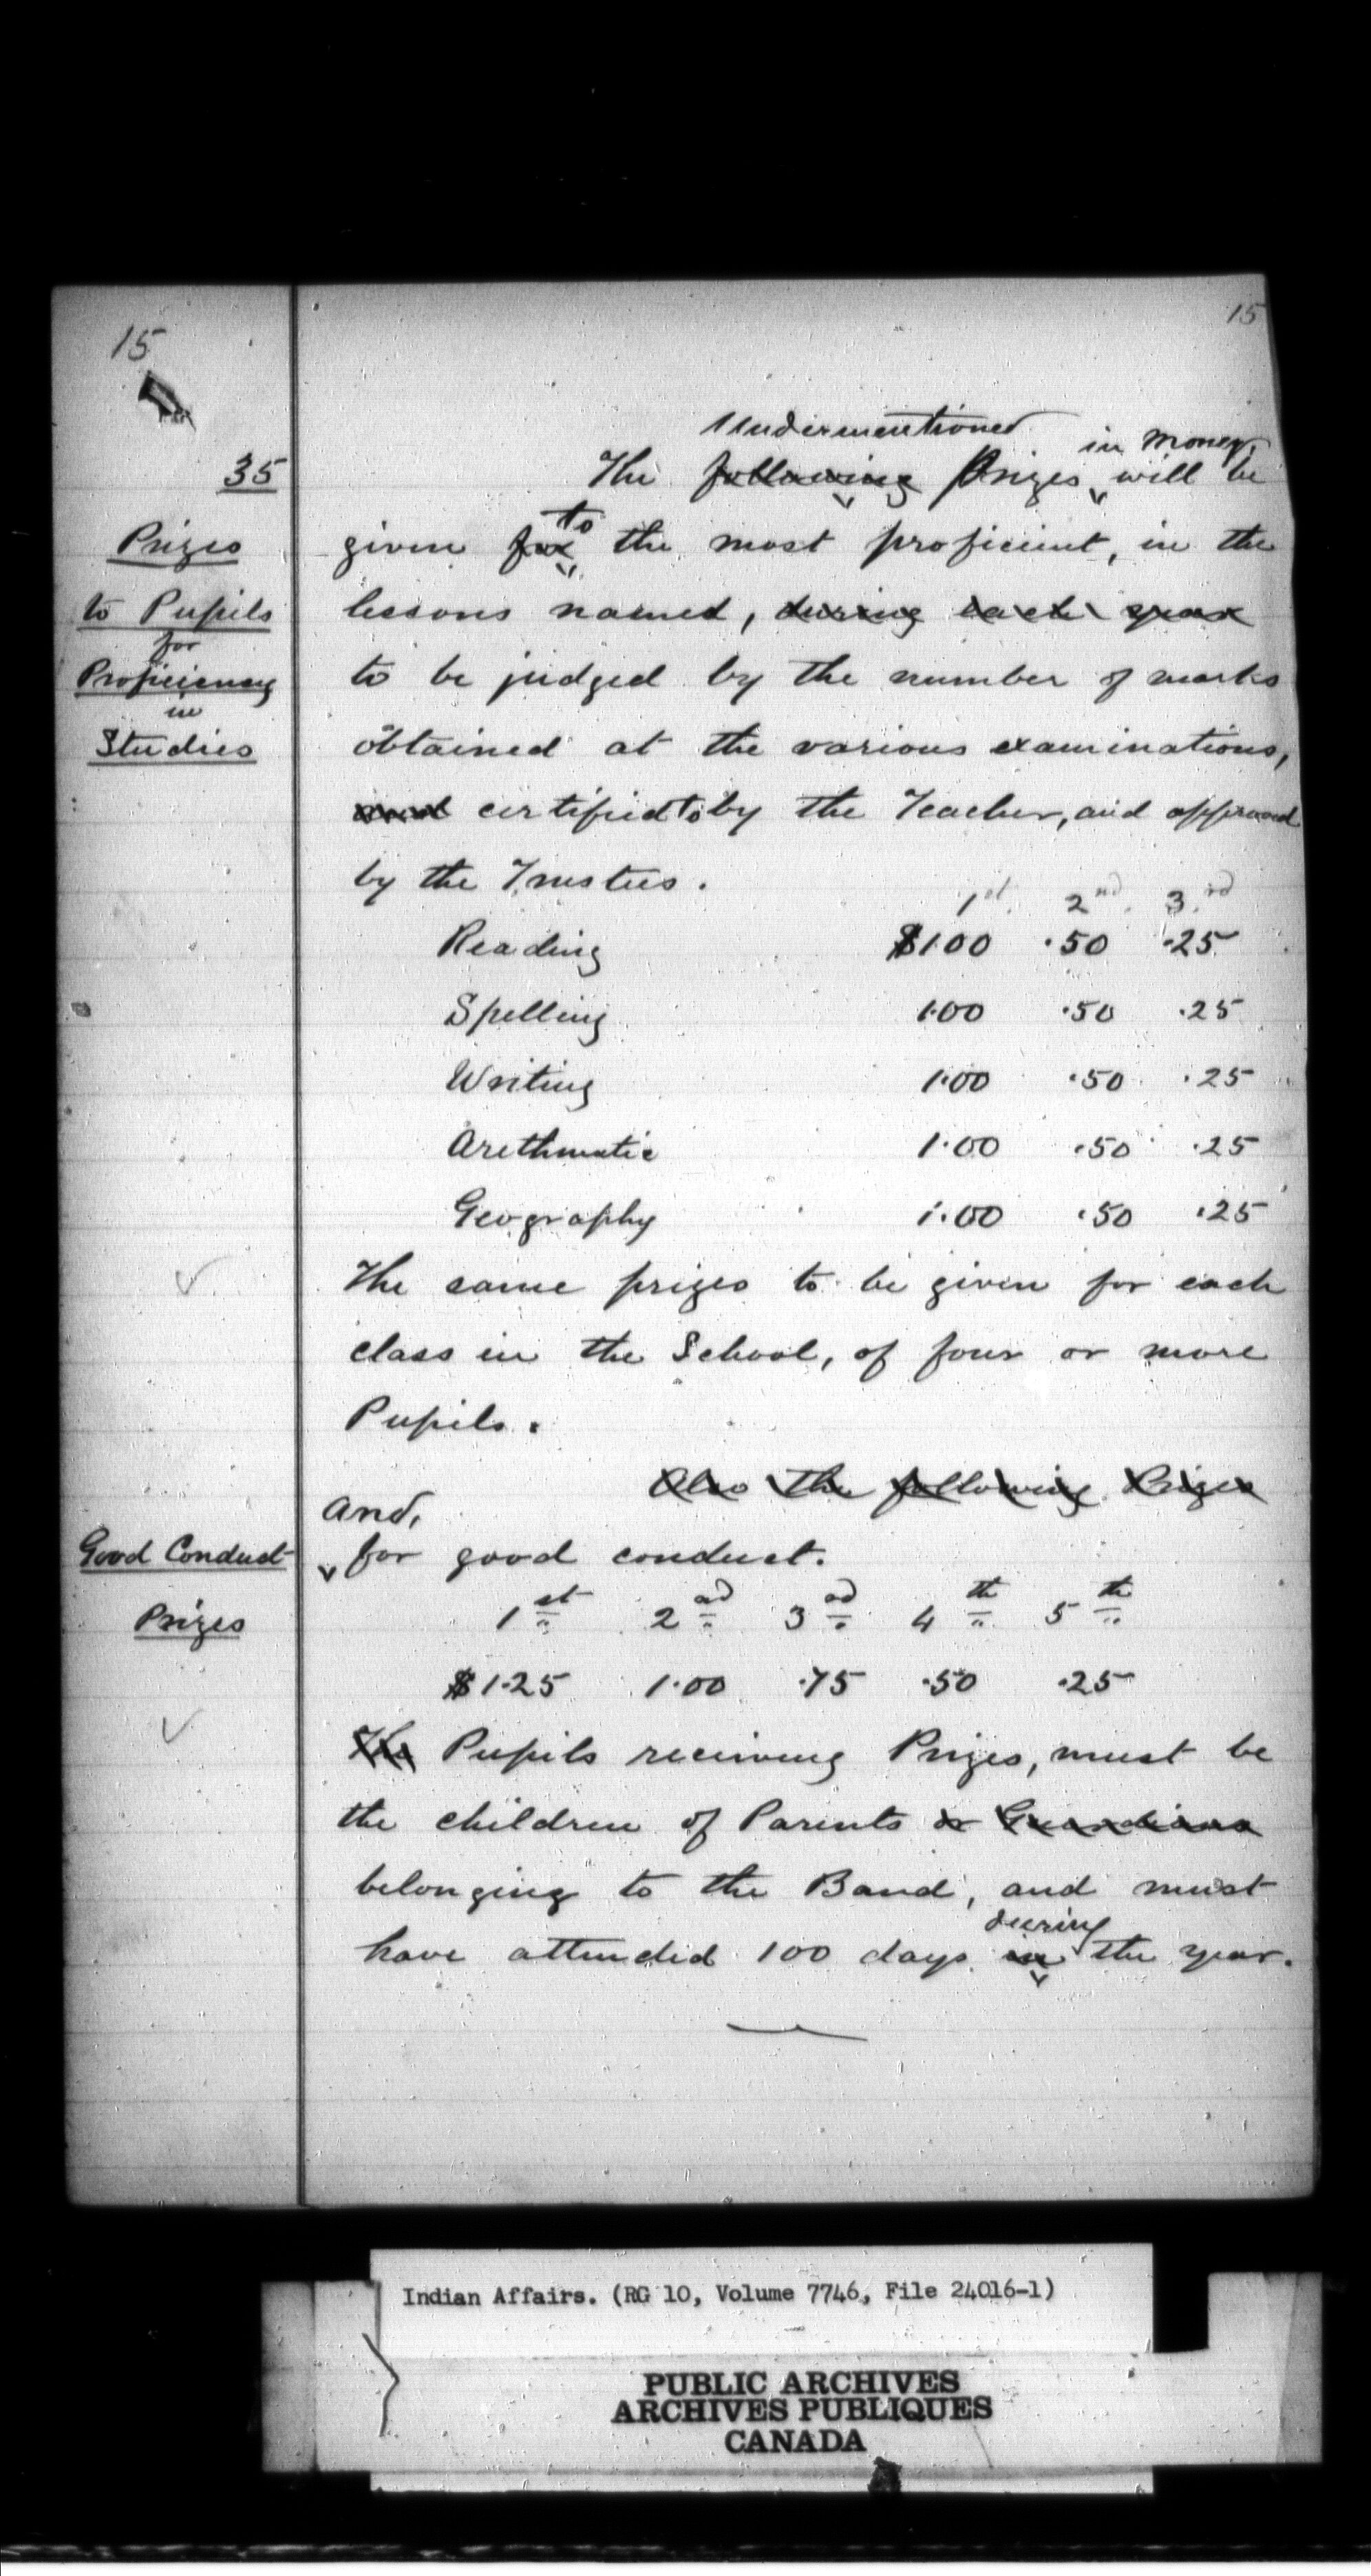 15
15
35
Undermentioned in money,
The following Prizes will be
Prizes
to
given for the most proficient, in the
to Pupils
lessons named, during each year
for
Proficiency
to be judged by the number of marks
in
Studies
obtained at the various examinations,
and certified to by the Teacher, and approved
by the Trustees.
1st. 2nd. 3.rd
Reading $1.00 .50 .25
Spelling 1.00 .50 .25
Writing 1.00 .50 .25
Arethmatic 1.00 .50 .25
Geography 1.00 .50 .25
The same prizes to be given for each
class in the School, of four or more
Pupils.
Also the following Prizes
and,
Good Conduct
for good conduct.
Prizes
1st 2nd 3rd 4th 5th
$1.25 1.00 .75 .50 .25
The Pupils receiving Prizes, must be
the children of Parents or Guardians
belonging to the Band, and must
during
have attended 100 days in the year.
Indian Affairs. (RG 10, Volume 7746, File 24016-1)
PUBLIC ARCHIVES
ARCHIVES PUBLIQUES
CANADA